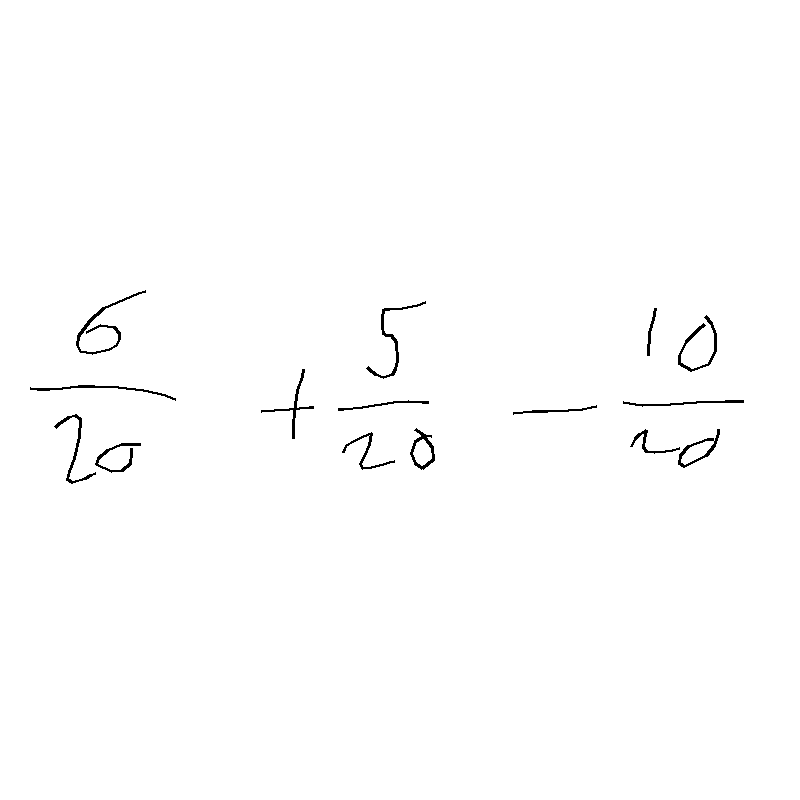 6/20 + 5/20 - 10/20